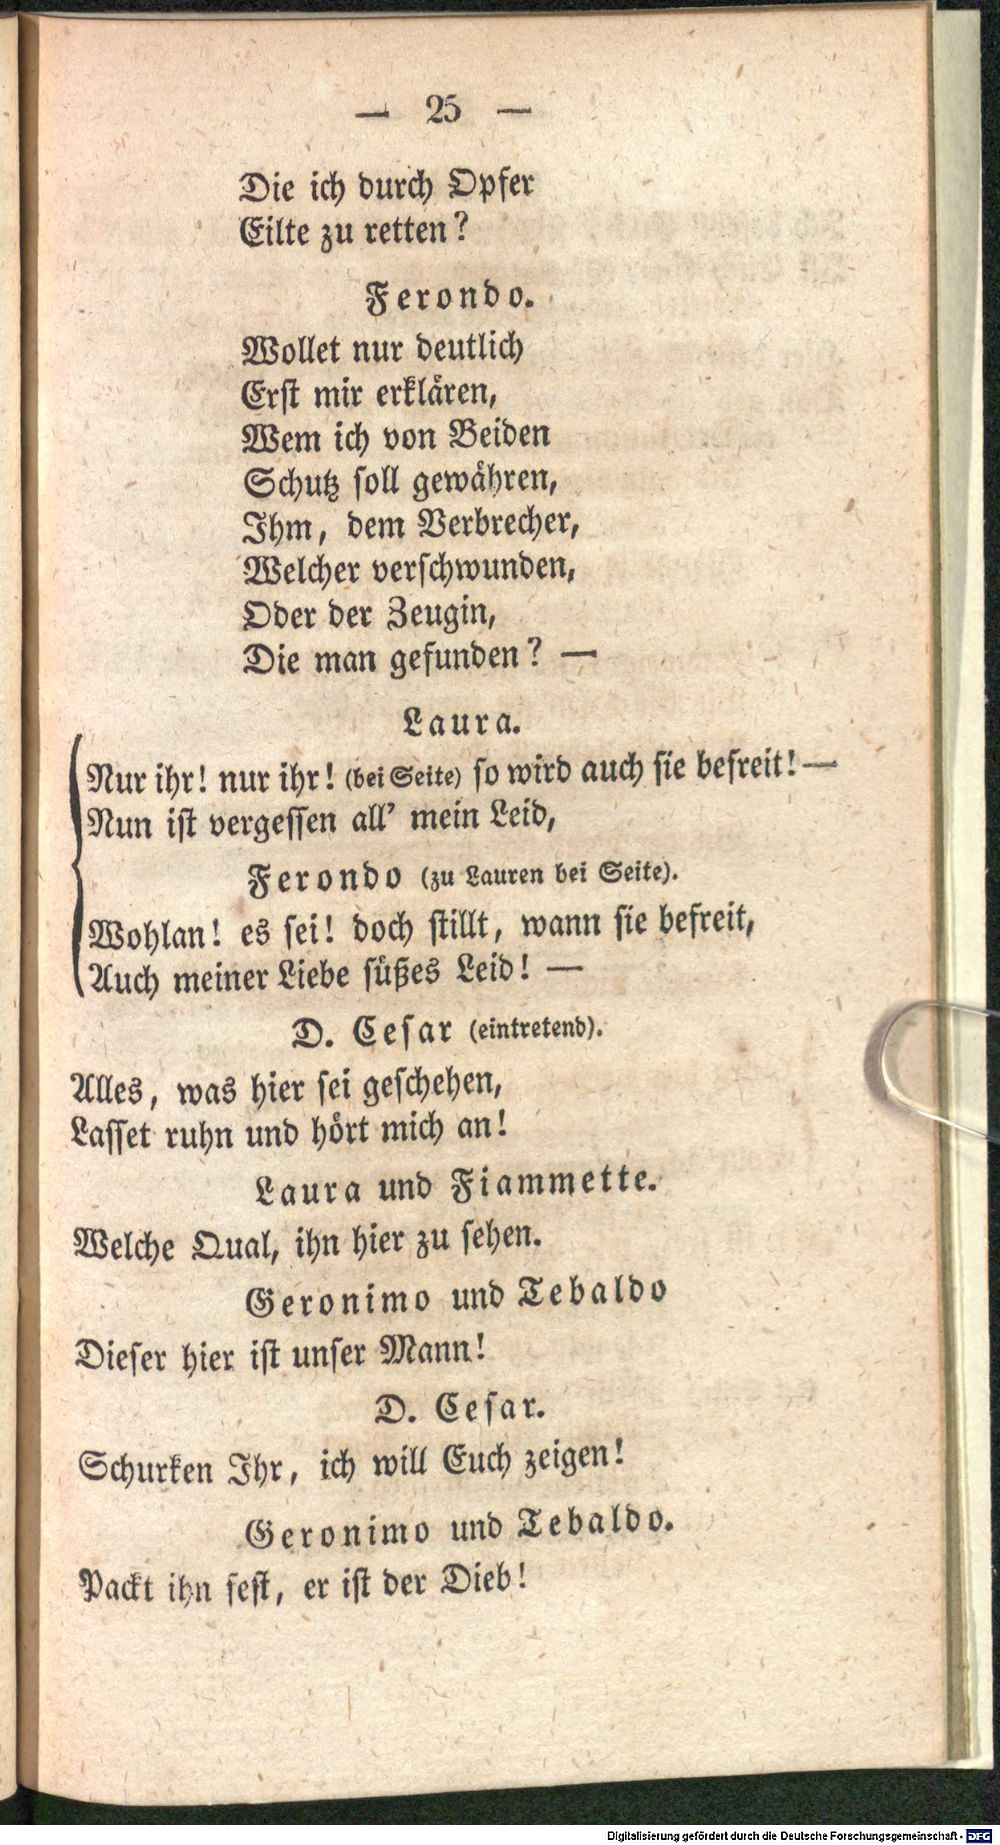 — 25 —
Die ich durch Opfer
Eilte zu retten?
Ferondo.
Wollet nur deutlich
Erst mir erklären,
Wem ich von Beiden
Schutz soll gewähren,
Ihm, dem Verbrecher,
Welcher verschwunden,
Oder der Zeugin,
Die man gefunden? —
Laura.
Nur ihr! nur ihr! (bei Seite) so wird auch sie befreit! —
Nun ist vergessen all' mein Leid,
Ferondo (zu Lauren bei Seite).
Wohlan! es sei! doch stillt, wann sie befreit,
Auch meiner Liebe süßes Leid! —
D. Cesar (eintretend).
Alles, was hier sei geschehen,
Lasset ruhn und hört mich an!
Laura und Fiammette.
Welche Qual, ihn hier zu sehen.
Geronimo und Tebaldo
Dieser hier ist unser Mann!
D. Cesar.
Schurken Ihr, ich will Euch zeigen!
Geronimo und Tebaldo.
Packt ihn fest, er ist der Dieb!
Digitalisierung gefördert durch die Deutsche Forschungsgemeinschaft - DFG